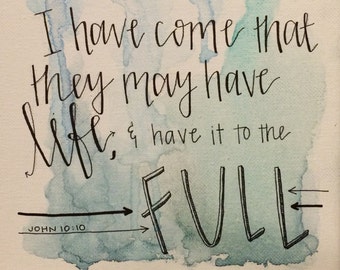 I have come that
they may have
life, & have it to the
FULL
JOHN 10:10